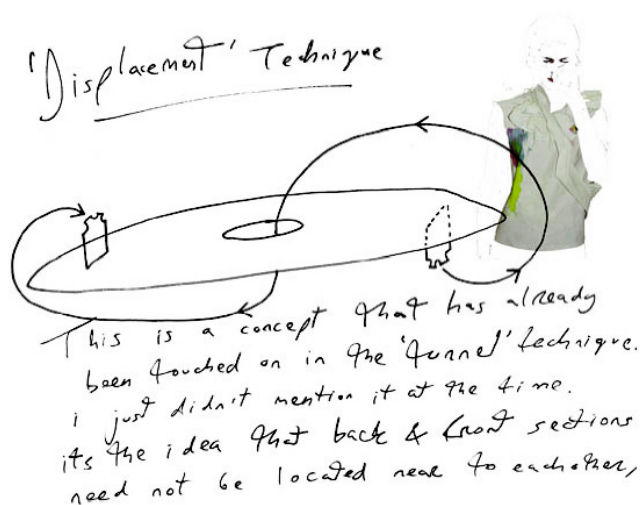 'Displacement' Technique
This is a concept that has already
been touched on in the 'tunnel' technique.
i just didn't mention it at the time.
its the idea that back & front sections
need not be located near to eachother,